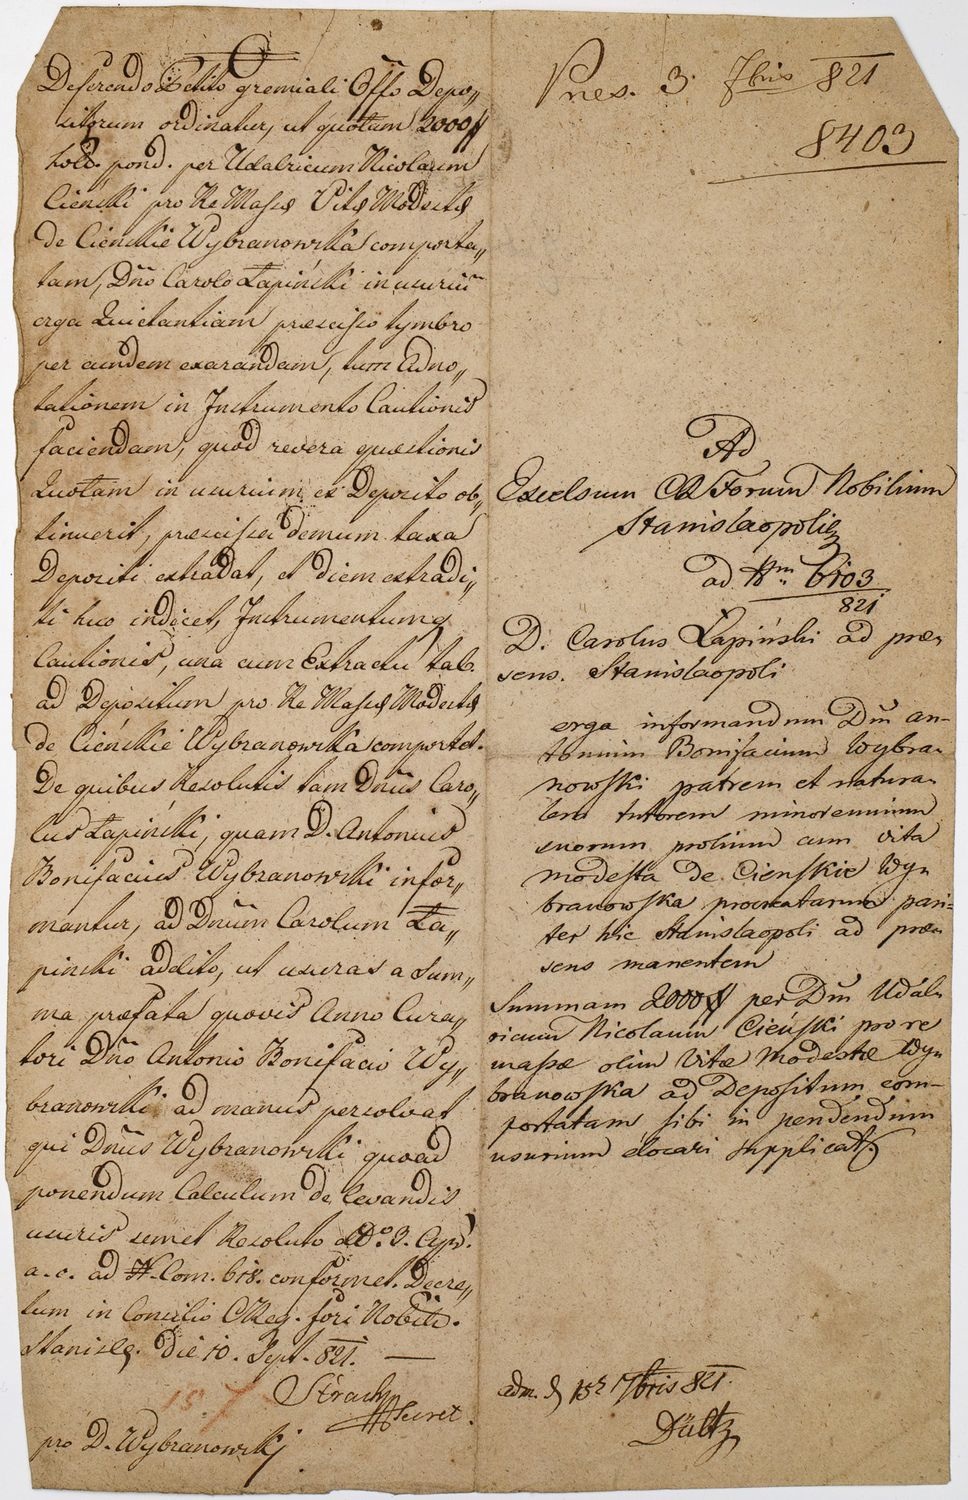 Deferendo Petito gremiali Offo Depo„
sitorum ordinatur, ut quotam 2000 f
hold. pond. per Udalricum Nicolaum
Cieński pro Re Massæ Vitæ Modestæ
de Cieńskie Wybranowska comporta„
tam, Dño Carolo Łapiński in usuriũ
erga Quietantiam præscisso tymbro
per eundem exarandam, tum Adno„
tationem in Instrumento Cautionis
faciendam, quod revera quæstionis
Quotam in usurium ex Deposito ob„
tinuerit, præscissa demum taxa
Depositi extradat, et diem extradi„
ti huc indicet, Instrumentumq
Cautionis, una cum Extractu tab.
ad Depositum pro Re Massæ Modestæ
de Cieńskie Wybranowska comportet.
De quibus Resolutis tam Dñus Caro„
lus Łapiński, quam D. Antonius
Bonifacius Wybranowski infor„
mantur, ad Dnũm Carolum Ła„
pinski addito, ut usuras a Sum„
ma præfata quovis Anno Cura„
tori Dño Antonio Bonifacio Wy„
branowski ad manus persolvat
qui Dñus Wybranowski quoad
ponendum Calculum de levandis
usuris semet Resoluto dDo. 3. Apr.
a. c. ad N. Com. 618. conformet. Decre„
tum in Consilio CReg. fori Nobil.
Stanisl. die 10. Sept. 821. —
Strach
Secret.
157
pro D. Wybranowski
Pnes. 3. 7bris 821
8403
Ad
Excelsum CR Forum Nobilium
Stanislaopoliæ
ad Nm. 6103
821
D. Carolus Łapiński ad præ„
sens. Stanislaopoli
erga informandum Dũm An-
tonium Bonifacium Wybra„
nowski patrem et natura„
lem tutorem minorennium
suorum prolium cum Vita
Modesta de Cienskie Wy„
branowska procreatarum pari=
ter hic Stanislaopoli ad præ„
sens manentem
Summam 2000 f per Dũm Udal„
ricum Nicolaum Cieński pro re
massæ olim Vitæ Modestæ Wy„
branowska ad Depositum com-
portatam sibi in pendendum
usurium elocari supplicat.
adm. d 15 7bris 821.
Dültz